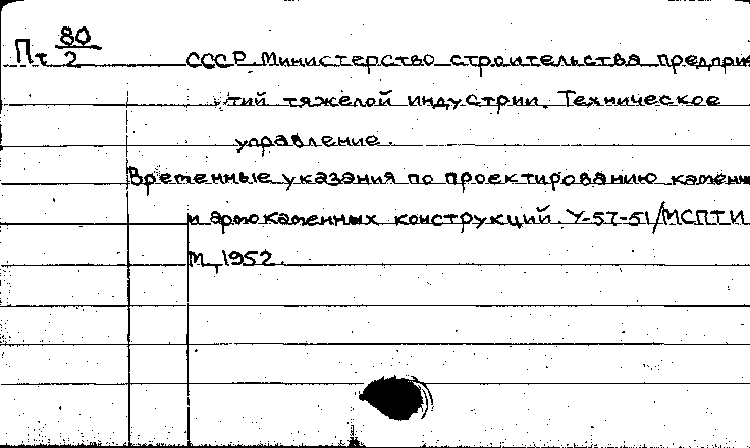 Пт 80/2
СССР. Министерство строительства предприя
тий тяжелой индустрии. Техническое
управление.
Временные указания по проектированию каменн
и армокаменных конструкций. У-57-51/МСПТИ
М., 1952.